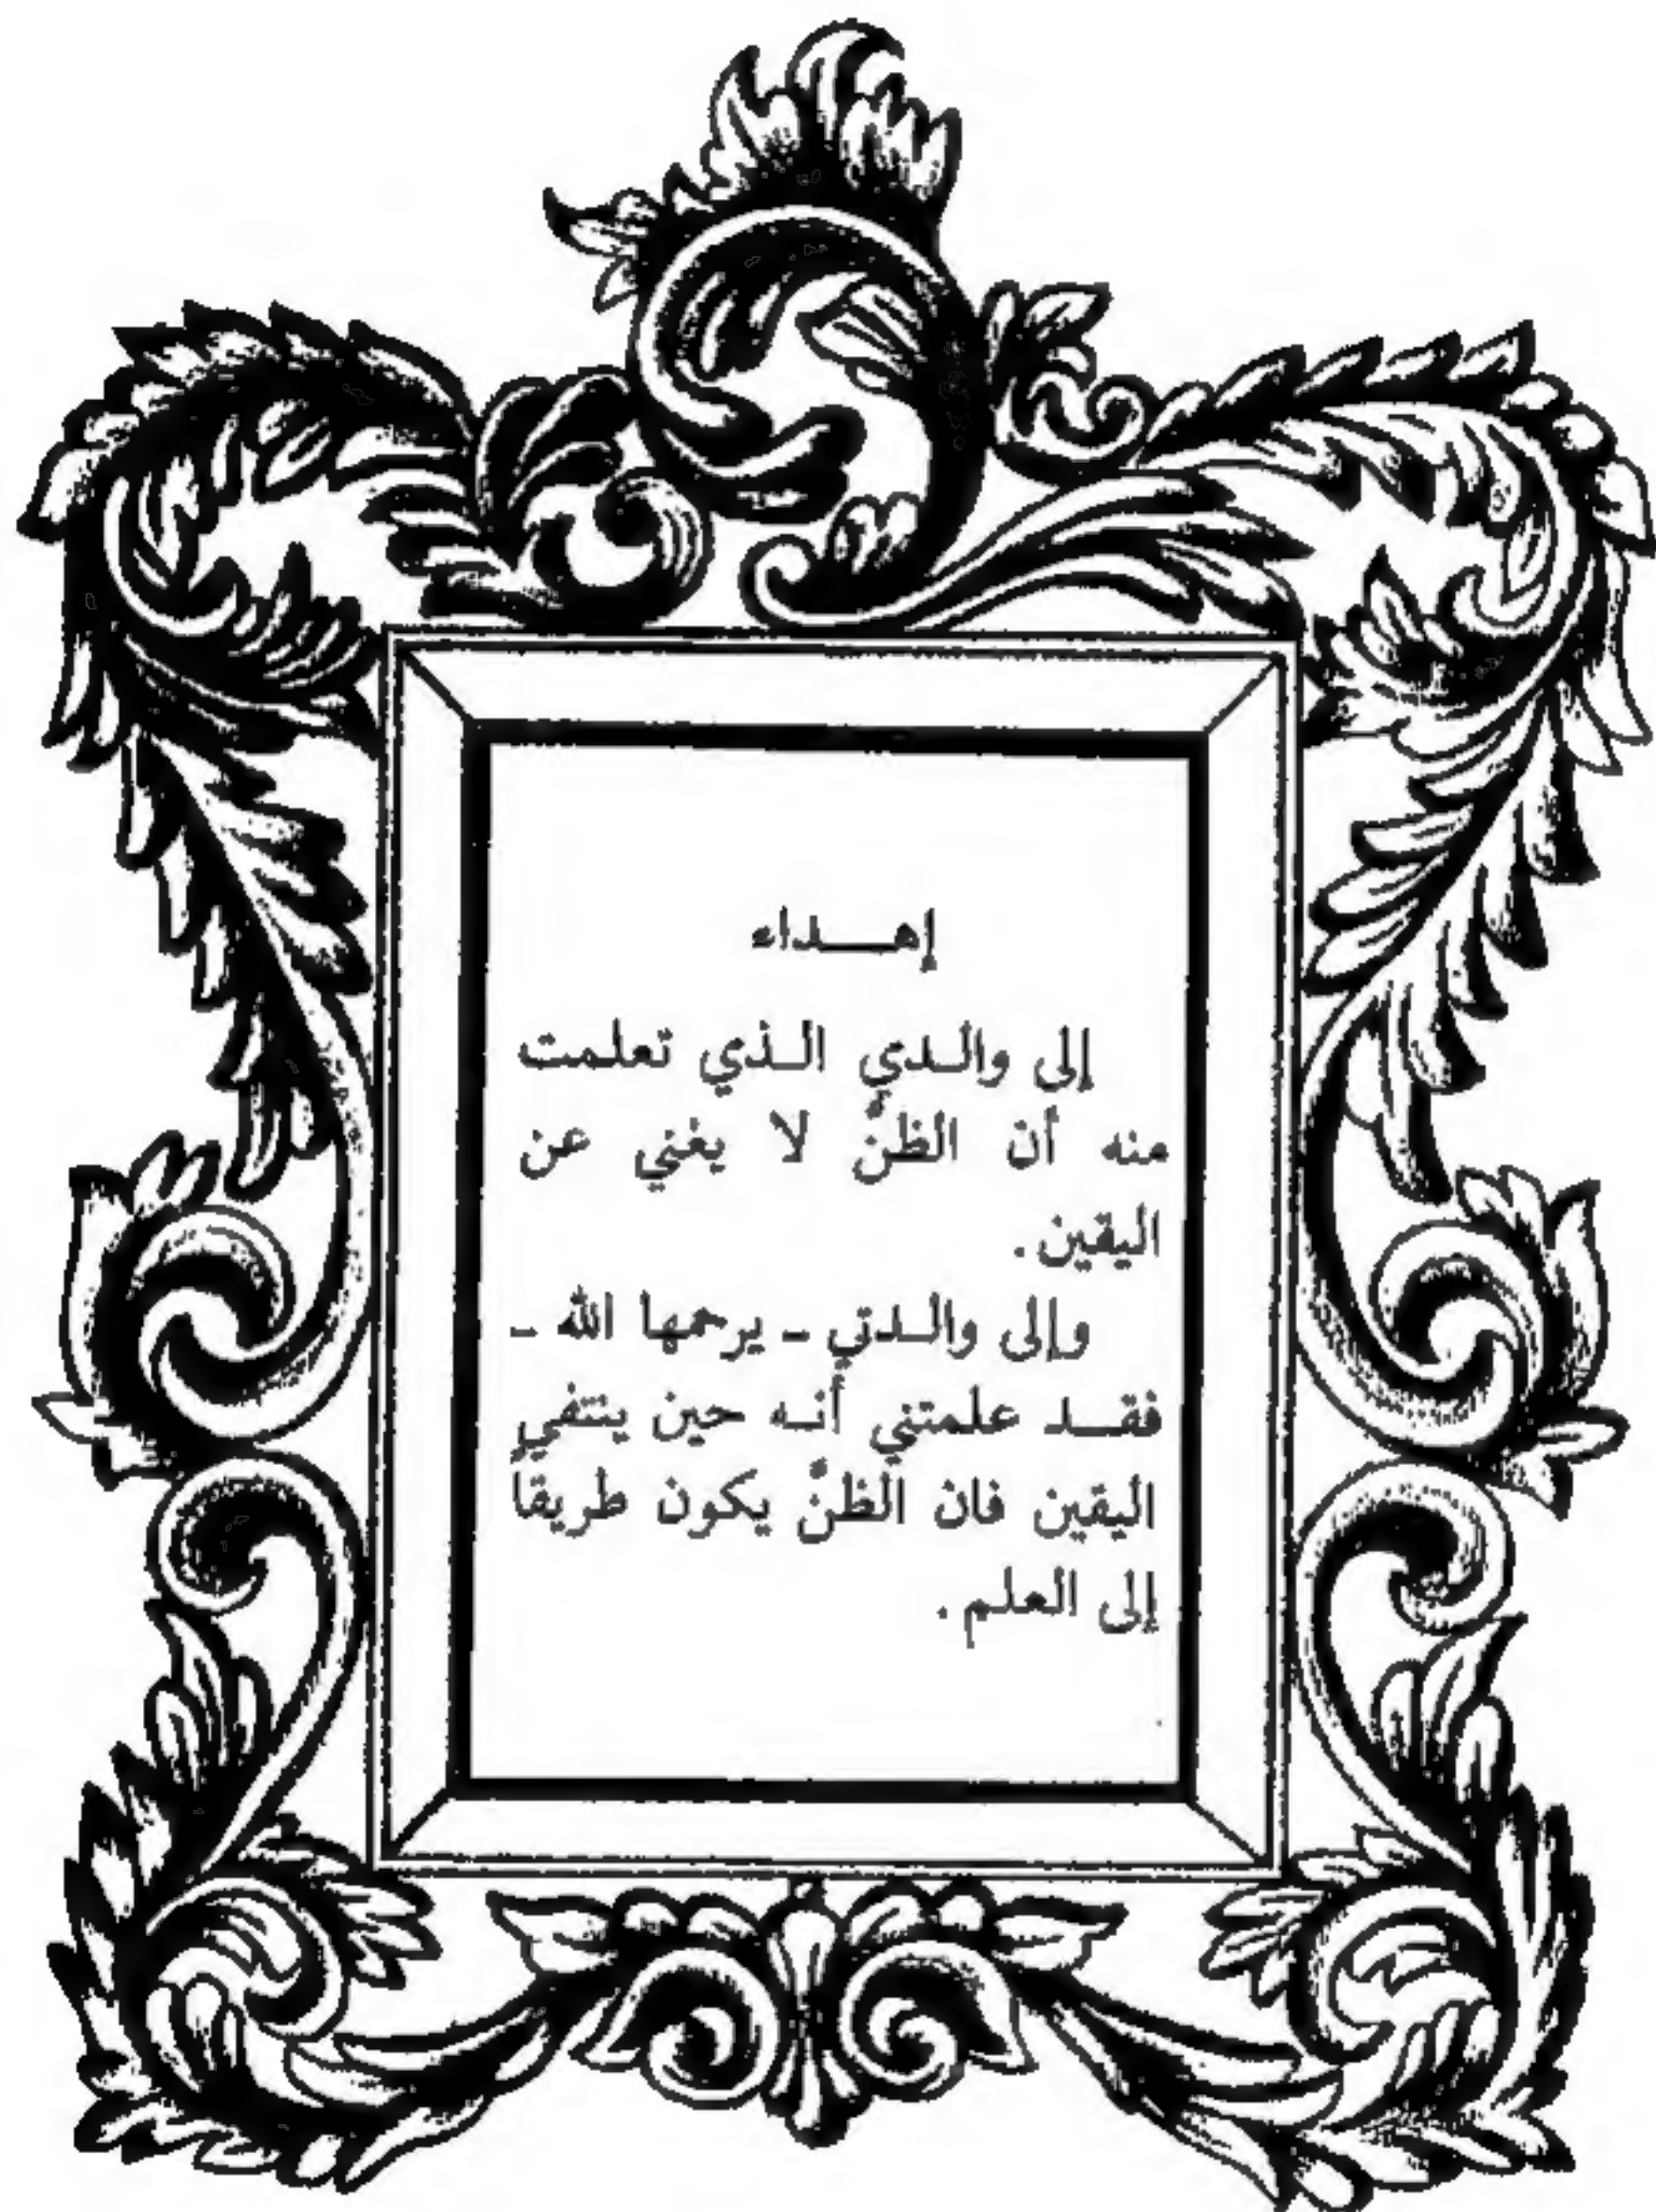 إهـــداء
إلى والـدي الـذي تعلمت
منه أن الظنّ لا يغني عن
اليقين.
وإلى والـدتي ـ يرحمها الله ـ
فقـد علمتني أنـه حين ينتفي
اليقين فان الظنّ يكون طريقاً
إلى العلم.